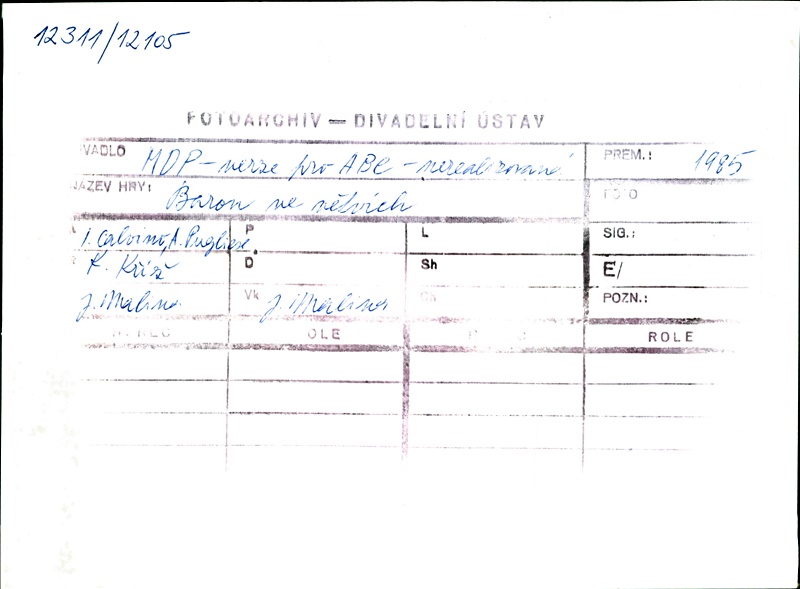 12311/12105
FOTOARCHIV — DIVADELNÍ ÚSTAV
VADLO MDP - verze pro ABC - nerealizovaná PREM.: 1985
NÁZEV HRY: Baron ve větvích FOTO
I. Calvino, A. Pugliese P L SIG.:
K. Kříž D Sh E/
J. Malina Vk J. Malina Ch POZN.:
OLE ROLE